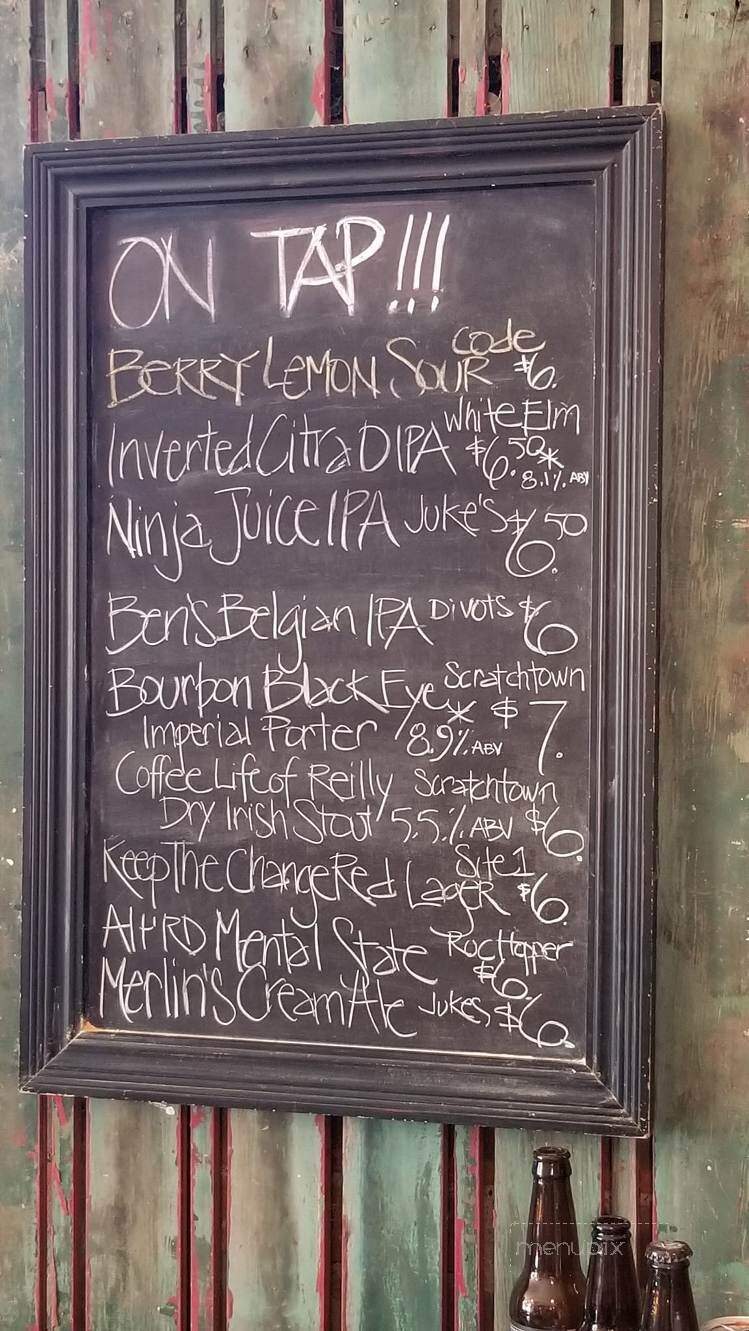 ON TAP!!!
BERRY LEMON SOUR Code $6.
Inverted Citra DIPA White Elm $6.50* 8.1% ABV
Ninja Juice IPA Juke's $6.50
Ben's Belgian IPA Divots $6
Bourbon Black Eye Scratchtown
Imperial Porter 8.9% ABV * $7.
Coffee Life of Reilly Scratchtown
Dry Irish Stout 5.5% ABV $6.
Keep The Change Red Lager Site 1 $6.
Mental State $6.
Merlin's Cream Ale Jukes, $6.
menupix